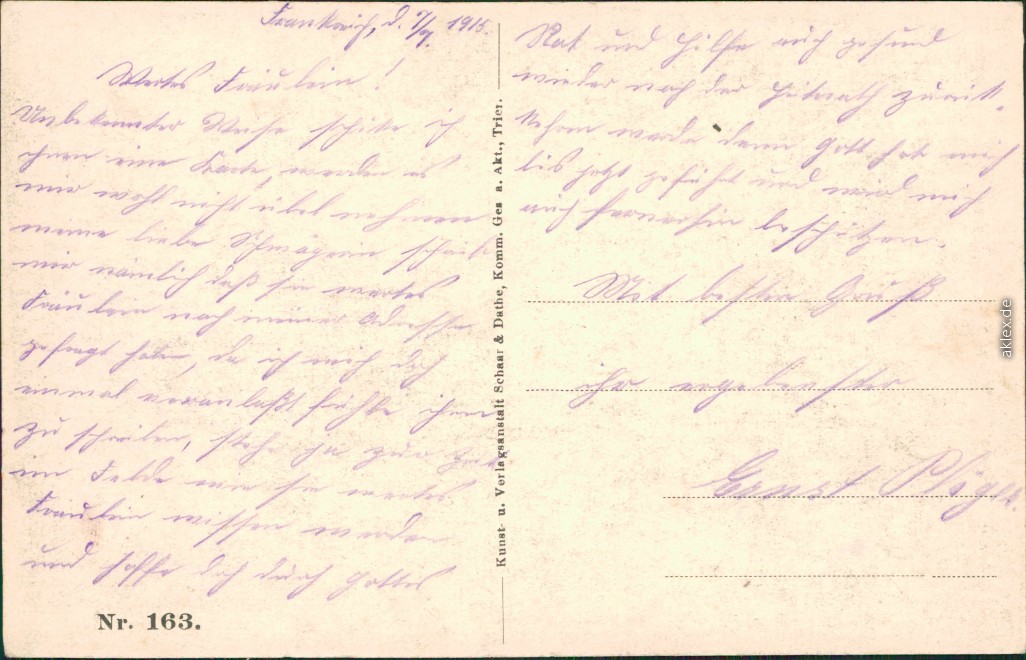 Frankreich, d. 7/9. 1915.
Wertes Fräulein!
Unbekannter Weise schike ich
ihnen eine Karte, werden es
mir wohl nicht übel nehmen
meine liebe Schwägerin schrieb
mir nämlich daß sie wertes
Fräulein nach meiner Adresse
gefragt haben, da ich mich doch
einmal veranlaßt fühle ihnen
zu schreiben, stehe ja zur Zeit
im Felde wie sie wertes
Fräulein wissen werden
und hoffe doch durch Gottes
Nr. 163.
Kunst- u. Verlagsanstalt Schaar & Dathe, Komm. Ges a. Akt., Trier.
Rat und Hilfe auch gesund
wieder nach der zurük-
kehren werde denn Gott hat mich
bis jetzt geführt und wird mich
auch fernerhin beschützen.
Mit besten Gruß
ihr ergebenster
Ernst
aklex.de